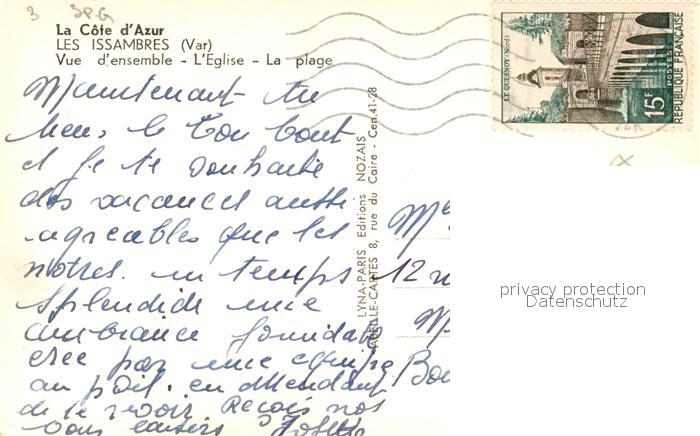 3 3PG
La Côte d'Azur
LES ISSAMBRES (Var)
Vue d'ensemble - L'Eglise - La plage
Maintenant tu
tiens le bon bout
et je te souhaite
des vacances aussi
agreables que les
notres. un temps
splendide une
ambiance formidable
cree par une equipe
au poil. en attendant
de te revoir Recois nos
bons baisers
LYNA-PARIS Editions NOZAIS
ABEILLE-CARTES 8, rue du Caire - Cen. 41-28
LE QUESNOY (Nord)
15F
POSTES
REPUBLIQUE FRANÇAISE
12
privacy protection
Datenschutz